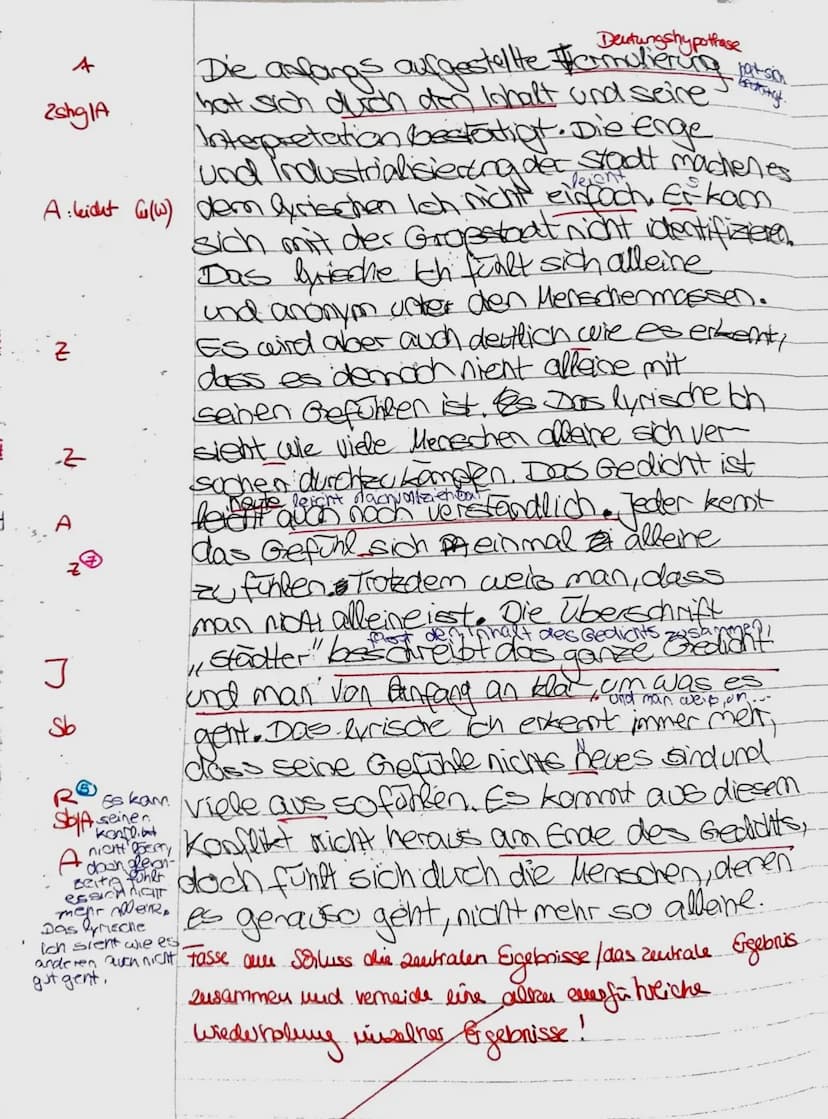 Deutungshypothese
A Die anfangs aufgestellte Formulierung hat sich bestätigt.
Zshg/A hat sich durch den Inhalt und seine
Interpretation bestätigt. Die Enge
und Industrialisierung der Stadt machen es
leicht s
A: leicht Gr(W) dem lyrischen Ich nicht einfach. Er kann
sich mit der Großstadt nicht identifizieren.
Das lyrische Ich fühlt sich alleine
und anonym unter den Menschenmassen.
Z Es wird aber auch deutlich wie es erkennt,
dass es dennoch nicht alleine mit
seinen Gefühlen ist. Das lyrische Ich
Z sieht wie viele Menschen alleine sich ver-
suchen durchzukämpfen. Das Gedicht ist
heute leicht nachvollziehbar
A leicht auch noch verständlich. Jeder kennt
Z 7 das Gefühl sich einmal alleine
zu fühlen. Trotzdem weis man, dass
man nicht alleine ist. Die Überschrift
fasst den Inhalt des Gedichts zusammen,
J „Städter" beschreibt das ganze Gedicht
und man von Anfang an klar, um was es
und man weiß, um ...
Sb geht. Das lyrische Ich erkennt immer mehr,
dass seine Gefühle nichts Neues sind und
R viele aus so fühlen. Es kommt aus diesem
Sb/A Konflikt nicht heraus am Ende des Gedichts,
A doch fühlt sich durch die Menschen, denen
es genauso geht, nicht mehr so alleine.
Es kann
seinen
Konflikt
nicht lösen,
doch gleich-
zeitig fühlt
es sich nicht
mehr alleine.
Das lyrische
Ich sieht wie es
anderen auch nicht
gut geht.
Fasse am Schluss die zentralen Ergebnisse/das zentrale Ergebnis
zusammen und vermeide eine allzu ausführliche
Wiederholung einzelner Ergebnisse!